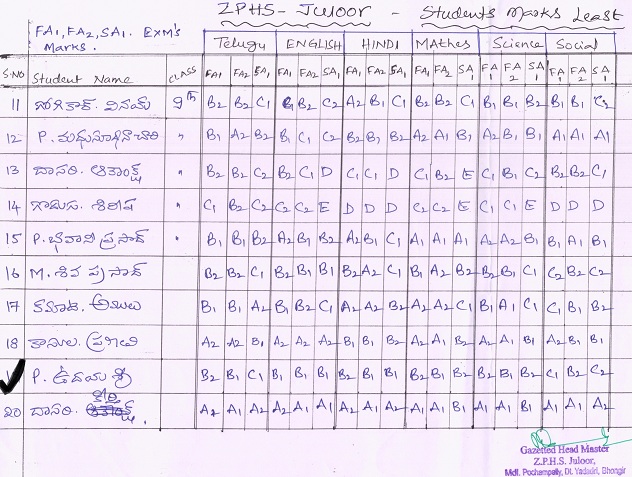 ZPHS- Juloor - Students Marks Least
FA1, FA2, SA1. EXM's
Marks.
Telugu ENGLISH HINDI MAthes Science Social
S.NO Student Name CLASS FA1 FA2 SA1 FA1 FA2 SA1 FA1 FA2 SA1 FA1 FA2 SA1 FA1 FA2 SA1 FA1 FA2 SA1
11 వినయ్ 9th B2 B2 C1 B1 B2 C2 A2 B1 C1 B2 B2 C1 B1 B1 B2 B1 B1 C2
12 P. మధుసూధనాచారి " B1 A2 B2 B1 C1 C2 B2 B1 B2 A2 A1 B1 A2 B1 B1 A1 A1 A1
13 దాసరి. " B2 B2 C2 B2 C1 D C1 C1 D C1 B2 E C1 B1 C2 B2 B2 C1
14 శిరీష " C1 B2 C2 C2 C2 E D D D C2 C2 E C1 C1 E D D D
15 P. భవాని ప్రసాద్ " B1 B1 B2 A2 B1 B2 A2 B1 C1 A1 A1 A1 A2 A2 B1 B1 A1 B1
16 M. శివ ప్రసాద్ B2 B2 C1 B2 B1 B1 B2 A2 C1 B1 A2 B2 B2 B2 C1 C2 B2 C2
17 B1 B1 A2 B1 B2 C1 A2 A2 B2 A2 A2 C1 B1 A1 C1 C1 B2 B2
18 A2 A2 B1 A2 A2 A2 B1 B1 B2 A2 A1 B2 A2 A1 B1 A2 B1 B1
P. ఉదయ శ్రీ B2 B1 C1 B1 B1 B1 B2 B1 B1 B2 B1 B2 B2 B1 B2 C1 B2 C2
20 దాసరి. A2 A1 A2 A2 A1 A1 A2 A1 A2 A1 A1 B1 A1 A1 B2 A1 A1 A2
Gazetted Head Master
Z.P.H.S. Juloor,
Mdl. Pochampally, Dt. Yadadri, Bhongir